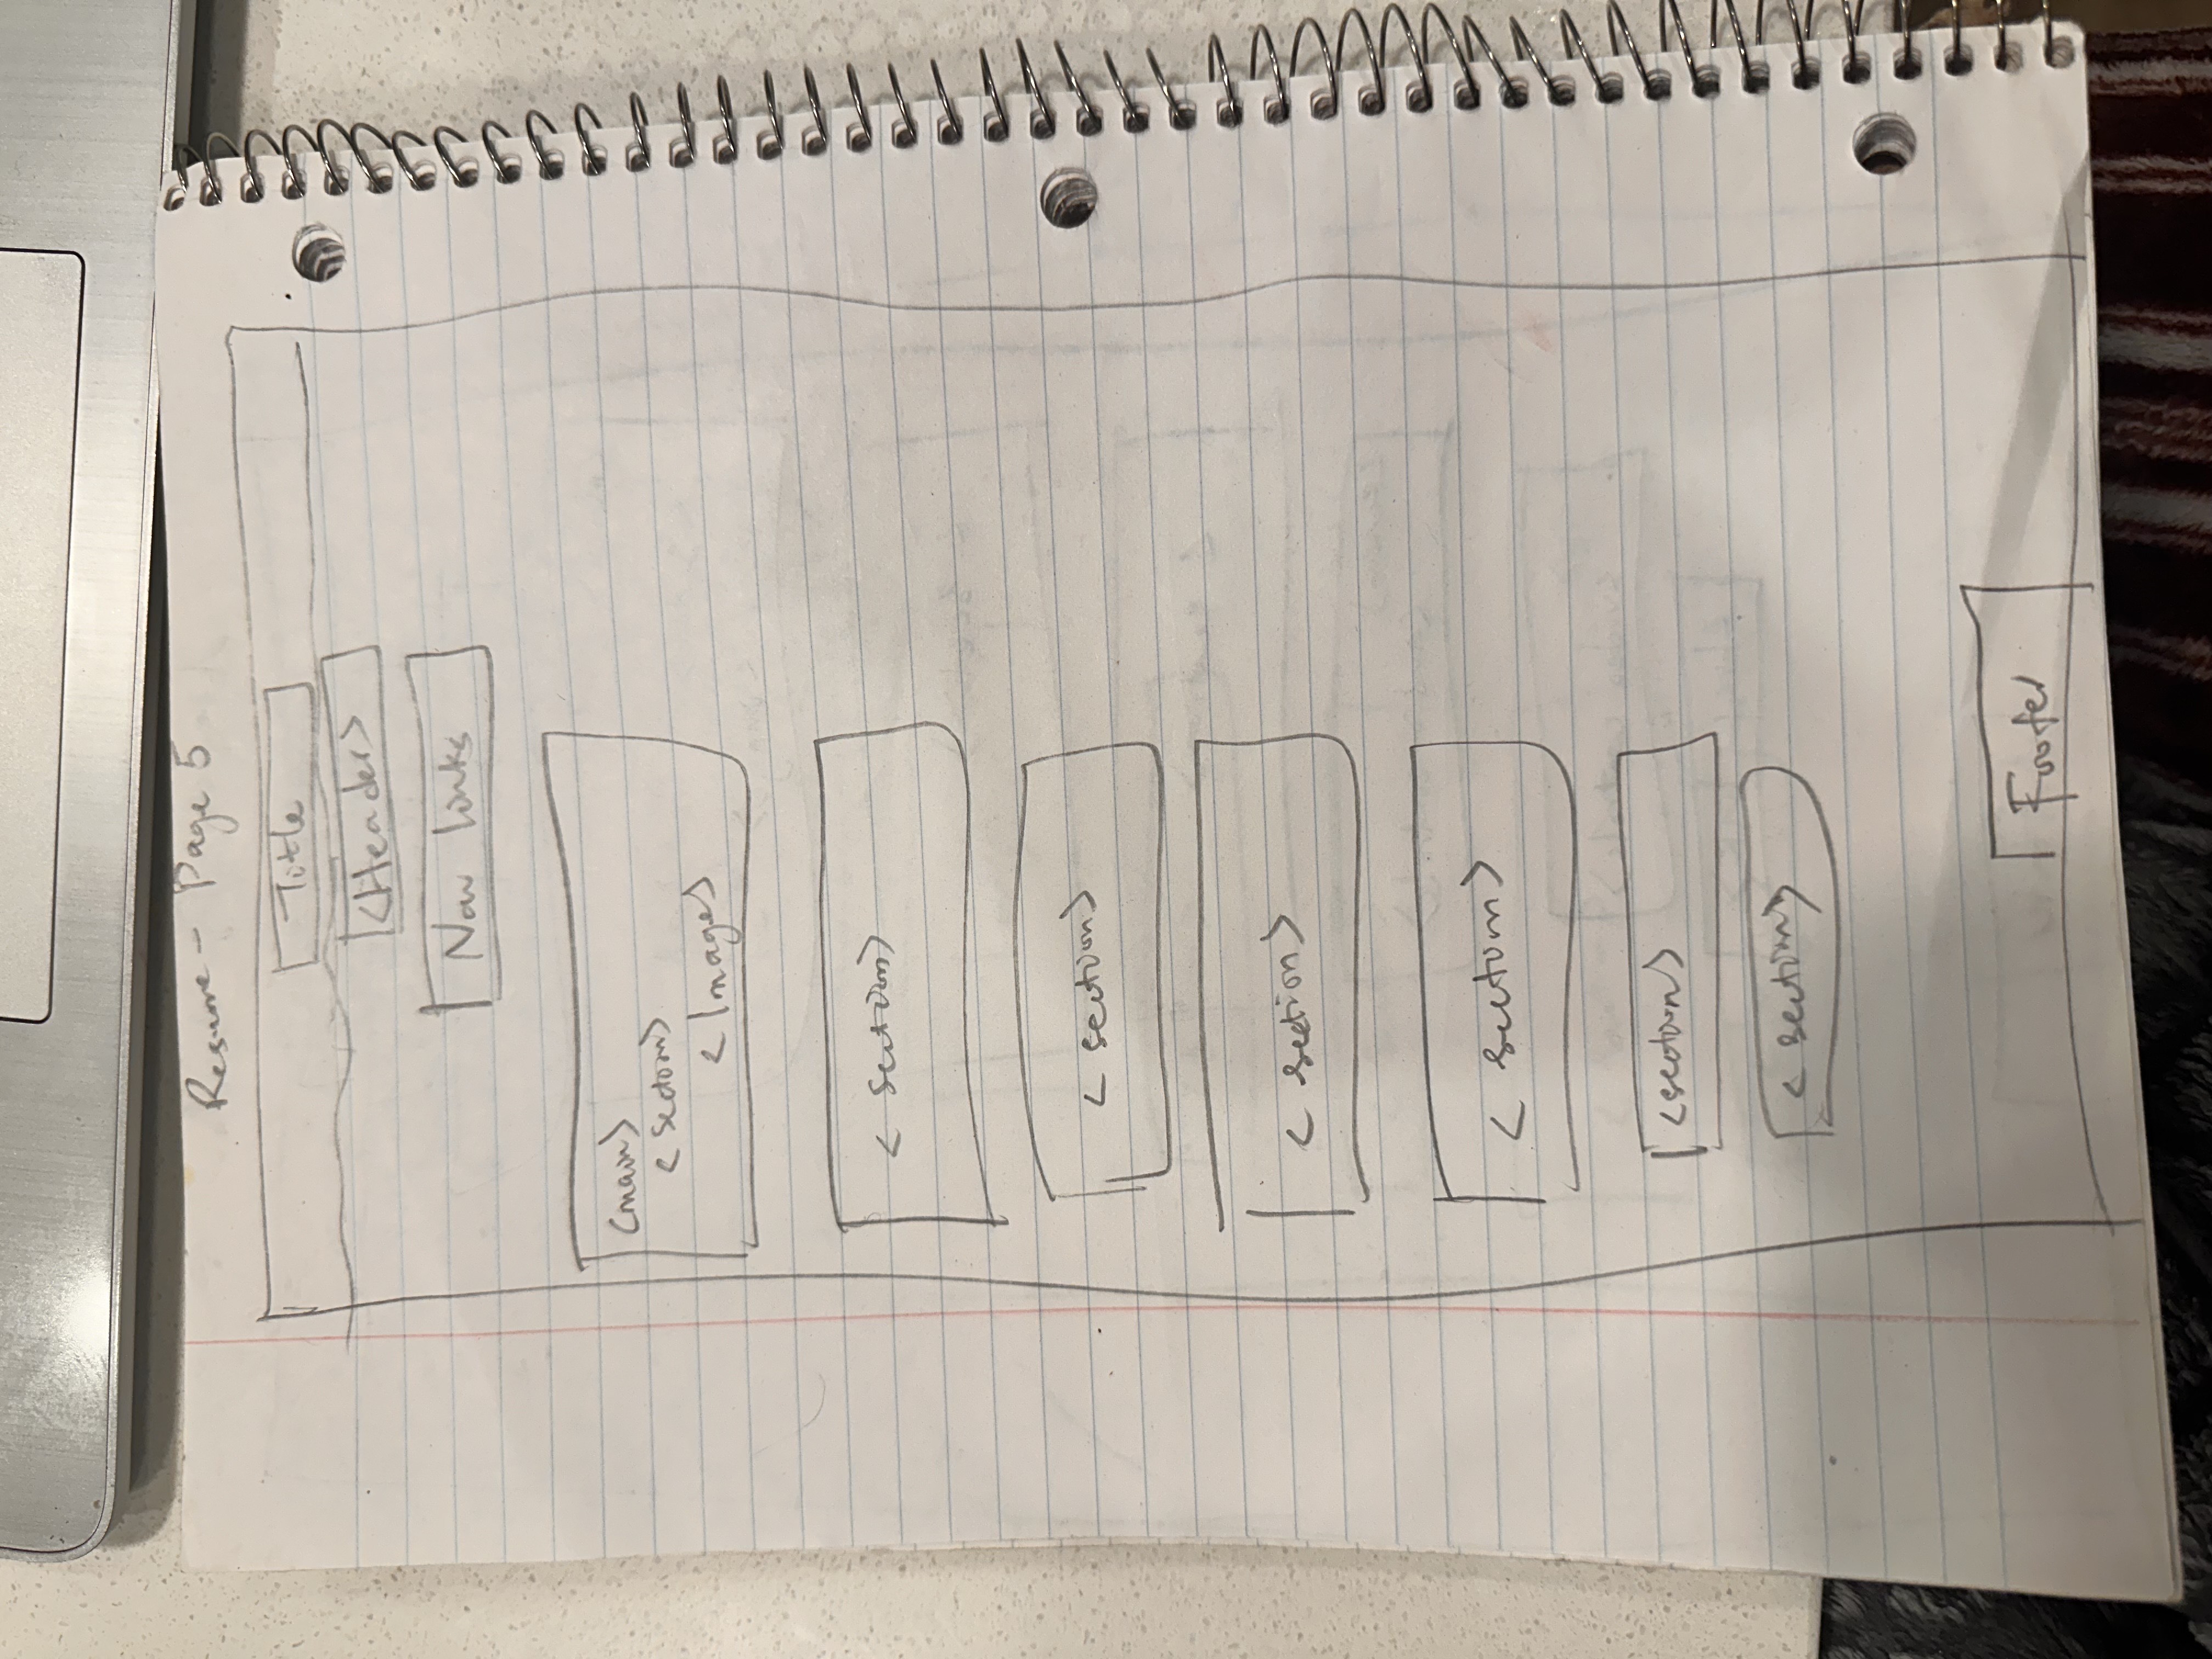 Resume - Page 5
Title
<Header>
Nav links
<main>
< section>
< Image>
< section>
< section>
< section>
< section>
<section>
< section>
Footer